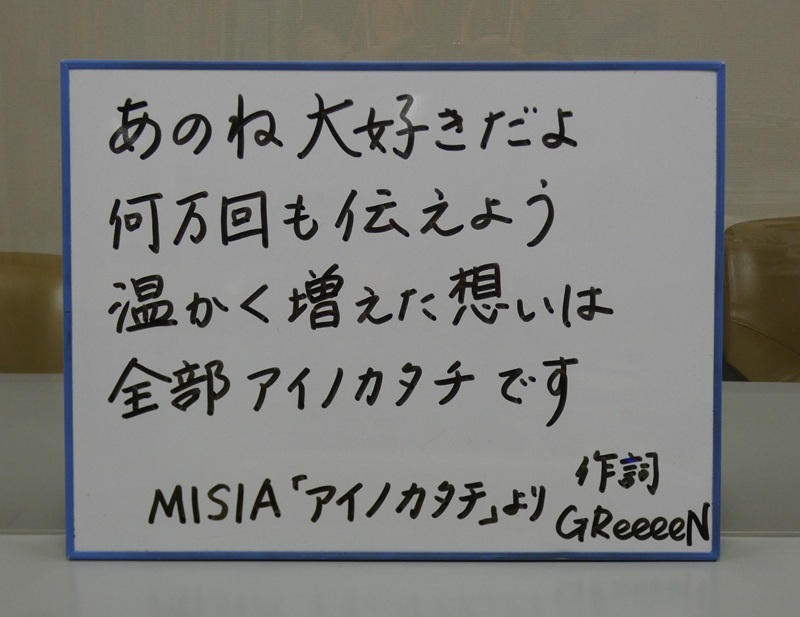 あのね大好きだよ
何万回も伝えよう
温かく増えた想いは
全部アイノカタチです
MISIA「アイノカタチ」より
作詞
GReeeeN